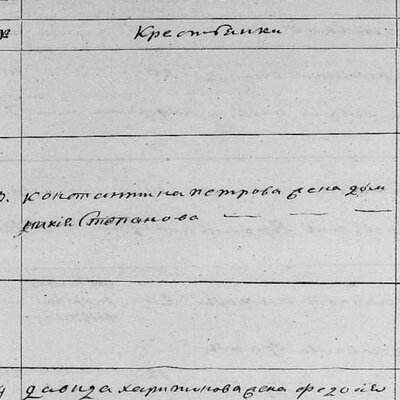 Крестьянки
константина петрова жена дом
никия Степанова
давида харитонова жена